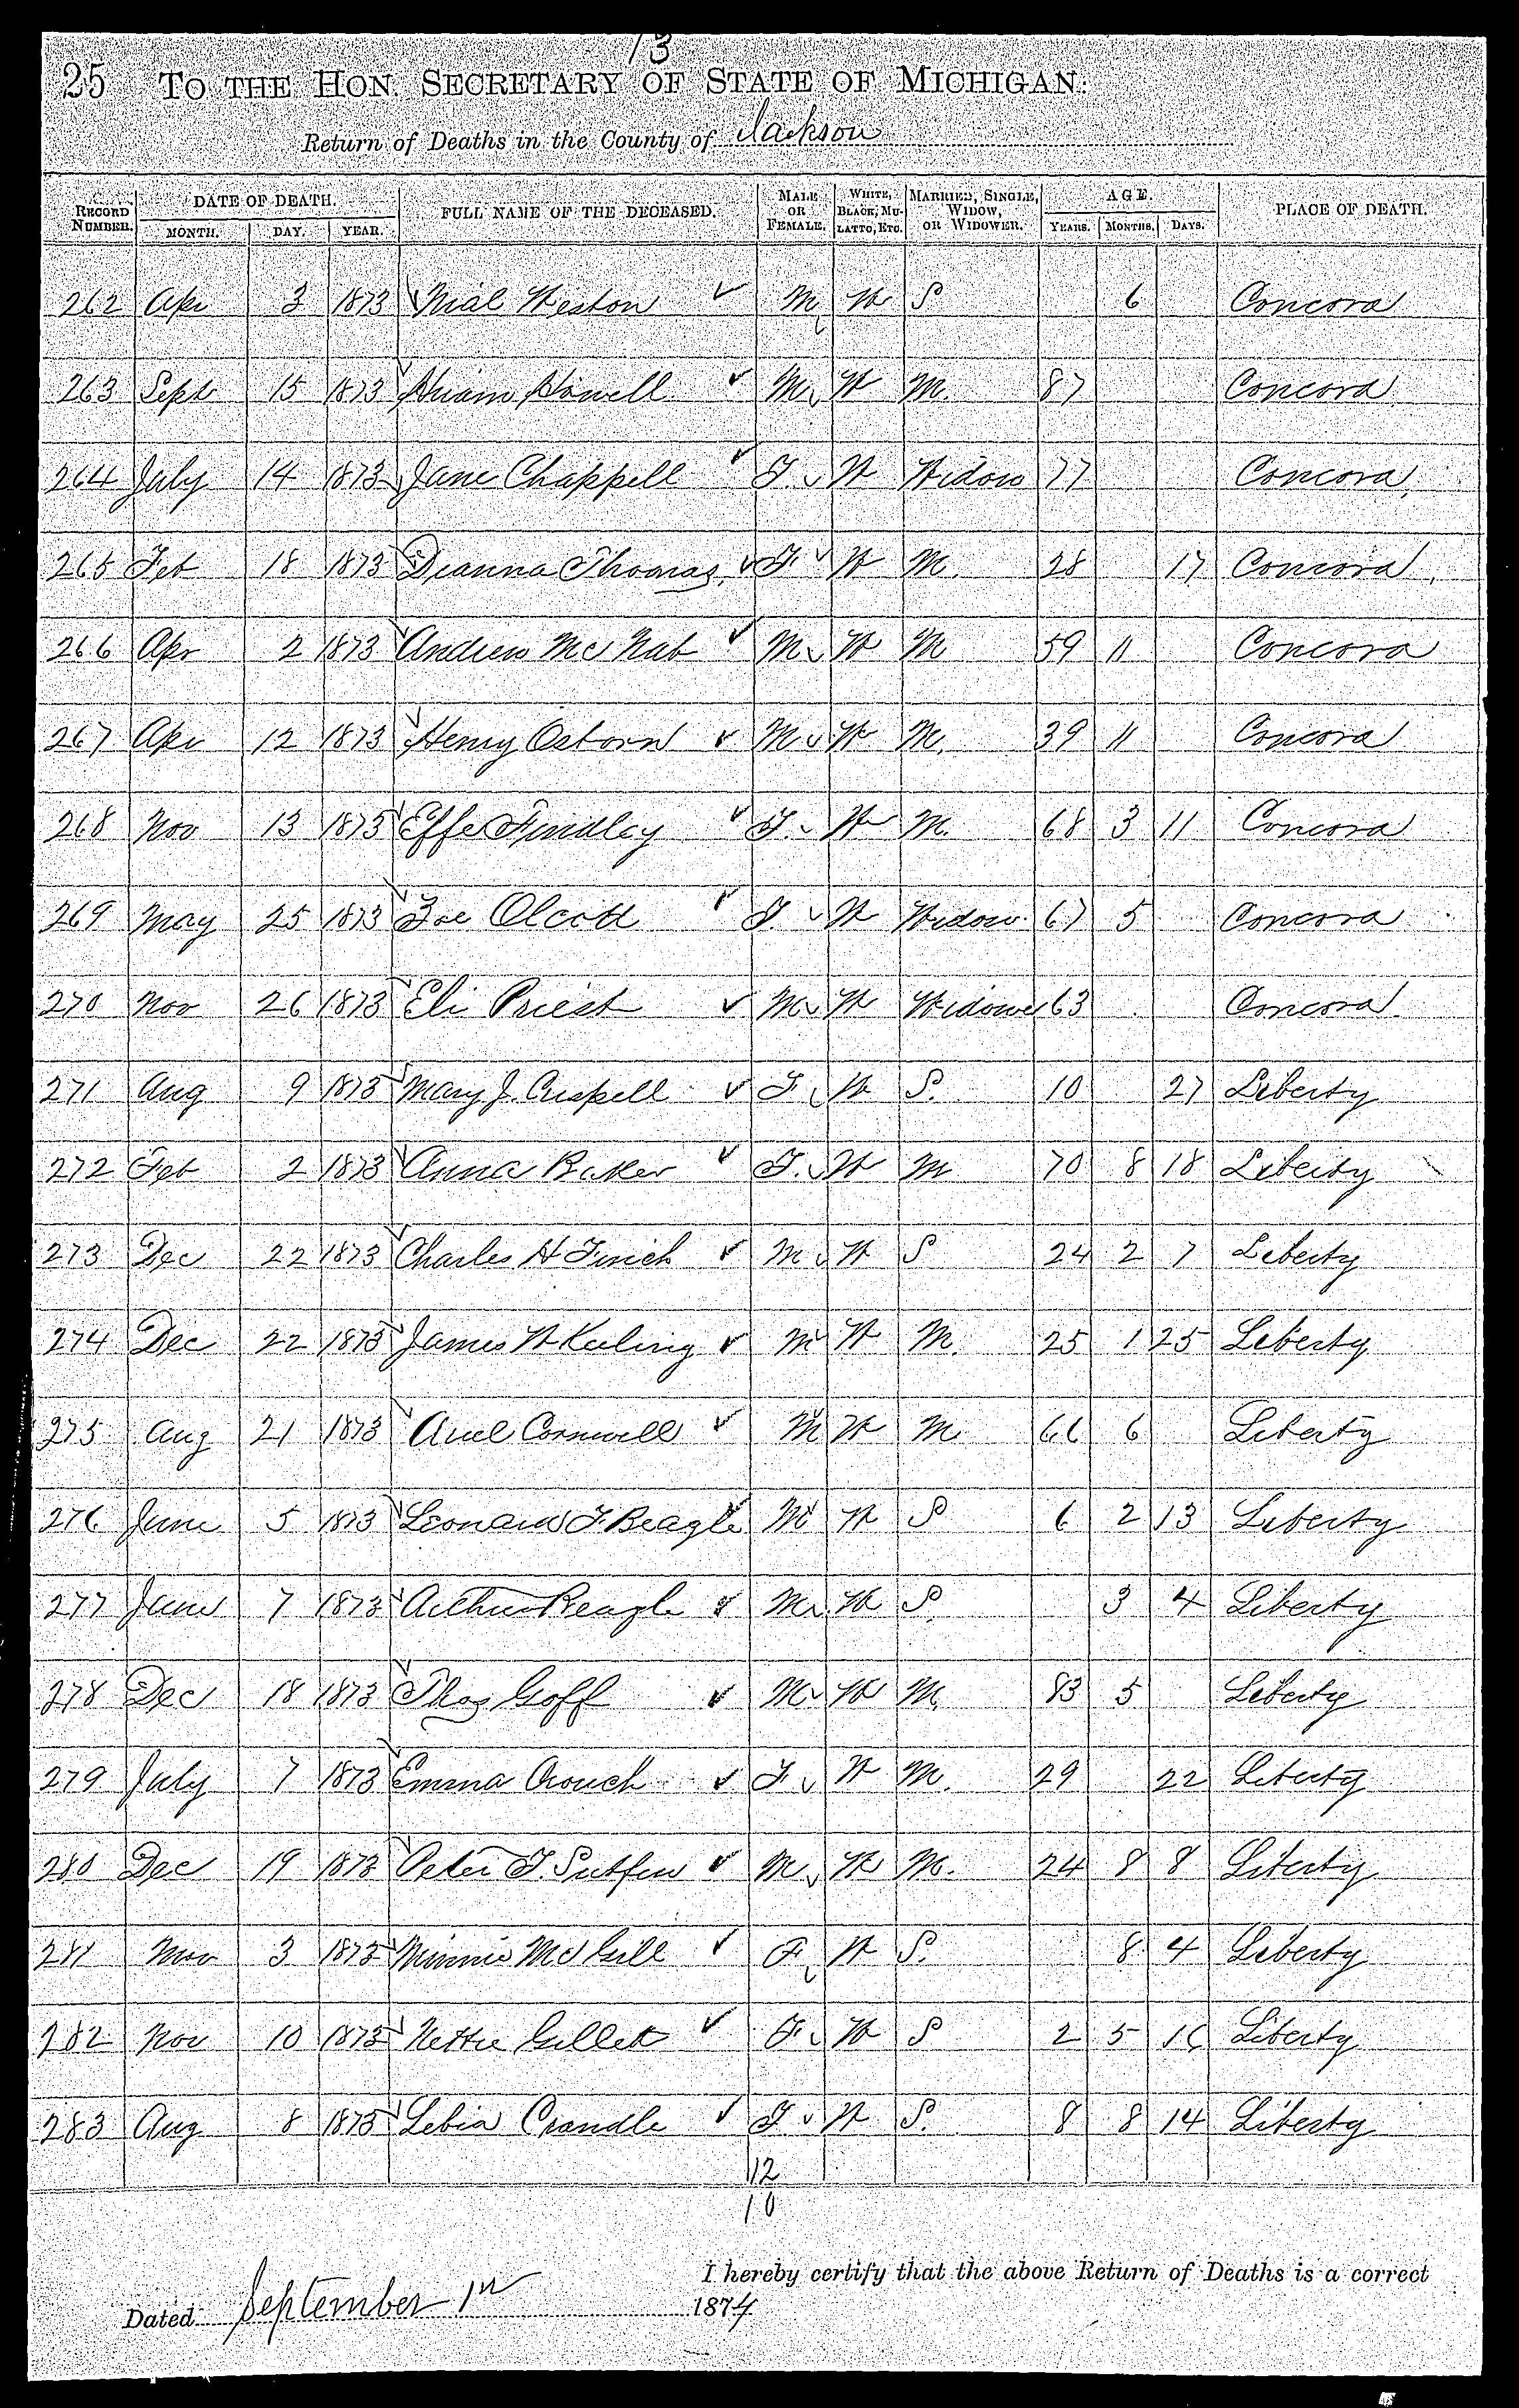 13
25 TO THE HON. SECRETARY OF STATE OF MICHIGAN:
Return of Deaths in the County of Jackson
RECORD NUMBER. DATE OF DEATH. MONTH. DAY. YEAR. FULL NAME OF THE DECEASED. MALE OR FEMALE. WHITE, BLACK, MULATTO, ETC. MARRIED, SINGLE, WIDOW, OR WIDOWER. AGE. YEARS. MONTHS. DAYS. PLACE OF DEATH.
262 Apr 3 1873 Nial Weston M W S 6 Concord
263 Sept 15 1873 Hiram Howell M W M. 87 Concord
264 July 14 1873 Jane Chappell F. W Widow 77 Concord
265 Feb 18 1873 Deanna Thomas F W M. 28 17 Concord
266 Apr 2 1873 Andrew Mc Nab M W M 59 11 Concord
267 Apr 12 1873 Henry Osborn M W M. 39 11 Concord
268 Nov 13 1873 Effe Findley F. W M. 68 3 11 Concord
269 May 25 1873 Zoe Olcott F. W Widow 67 5 Concord
270 Nov 26 1873 Eli Priest M W Widower 63 Concord
271 Aug 9 1873 Mary J. Crispell F W S. 10 27 Liberty
272 Feb 2 1873 Anna Baker F. W M 70 8 18 Liberty
273 Dec 22 1873 Charles H Finch M W S 24 2 7 Liberty
274 Dec 22 1873 James W Keeling M W M. 25 1 25 Liberty
275 Aug 21 1873 Ariel Cornwell M W M 66 6 Liberty
276 June 5 1873 Leonard F Beagle M W S 6 2 13 Liberty
277 June 7 1873 Arthur Beagle M W S. 3 4 Liberty
278 Dec 18 1873 Thos Goff M W M. 83 5 Liberty
279 July 7 1873 Emma Crouch F W M. 29 22 Liberty
280 Dec 19 1873 Peter F. Sutfin M W M. 24 8 8 Liberty
281 Nov 3 1873 Minnie McGill F W S. 8 4 Liberty
282 Nov 10 1873 Nettie Gillett F W S 2 5 16 Liberty
283 Aug 8 1873 Lebia Crandle F W S. 8 8 14 Liberty
12
10
I hereby certify that the above Return of Deaths is a correct
Dated September 1st 1874